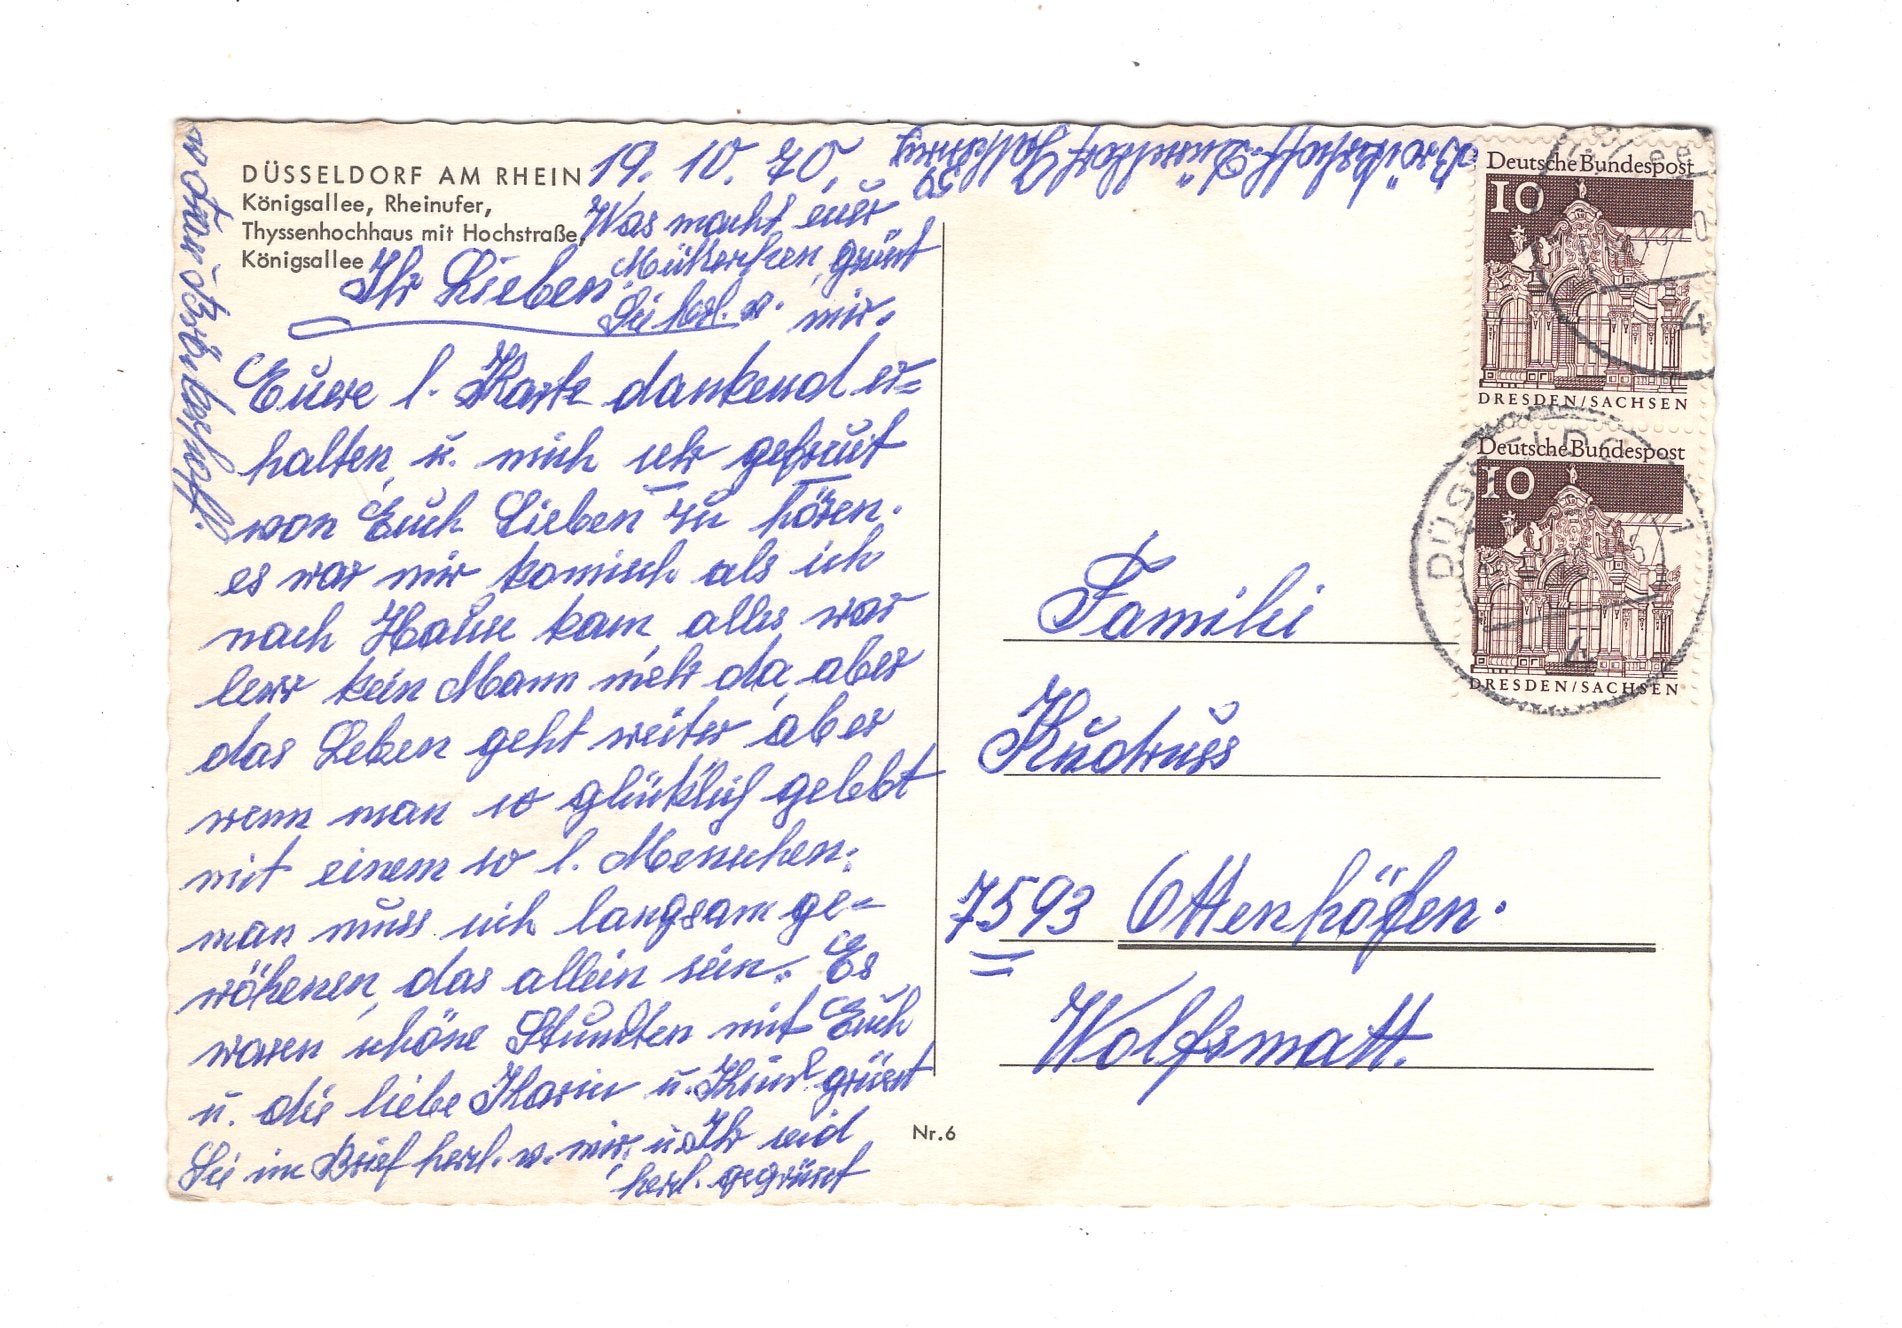 DÜSSELDORF AM RHEIN
Königsallee, Rheinufer,
Thyssenhochhaus mit Hochstraße,
Königsallee
19. 10. 70.
Was macht euer
Mütterchen, grüßt
Sie herl. v. mir.
Ihr Lieben
Euere l. Karte dankend er=
halten, u. mich sehr gefreut
von Euch Lieben zu hören.
es war mir komisch als ich
nach Hause kam, alles war
leer kein Mann mehr da, aber
das Leben geht weiter, aber
wenn man so glücklich gelebt
mit einem so l. Menschen.
man muss sich langsam ge=
wöhenen, das allein sein. Es
waren schöne Stunden mit Euch
u. die liebe Karin u. Kind grüsst
Sie im Brief herzl. v. mir. u. Ihr seid
herzl. gegrüsst
v Frau Brökerhoff.
Brökerhoff 4 Düsseldorf
Familie
Kudruss
7593 Ottenhöfen.
Wolfsmatt.
Nr. 6
Deutsche Bundespost
10
DRESDEN/SACHSEN
Deutsche Bundespost
10
DRESDEN/SACHSEN
DÜSSELDORF 1
4